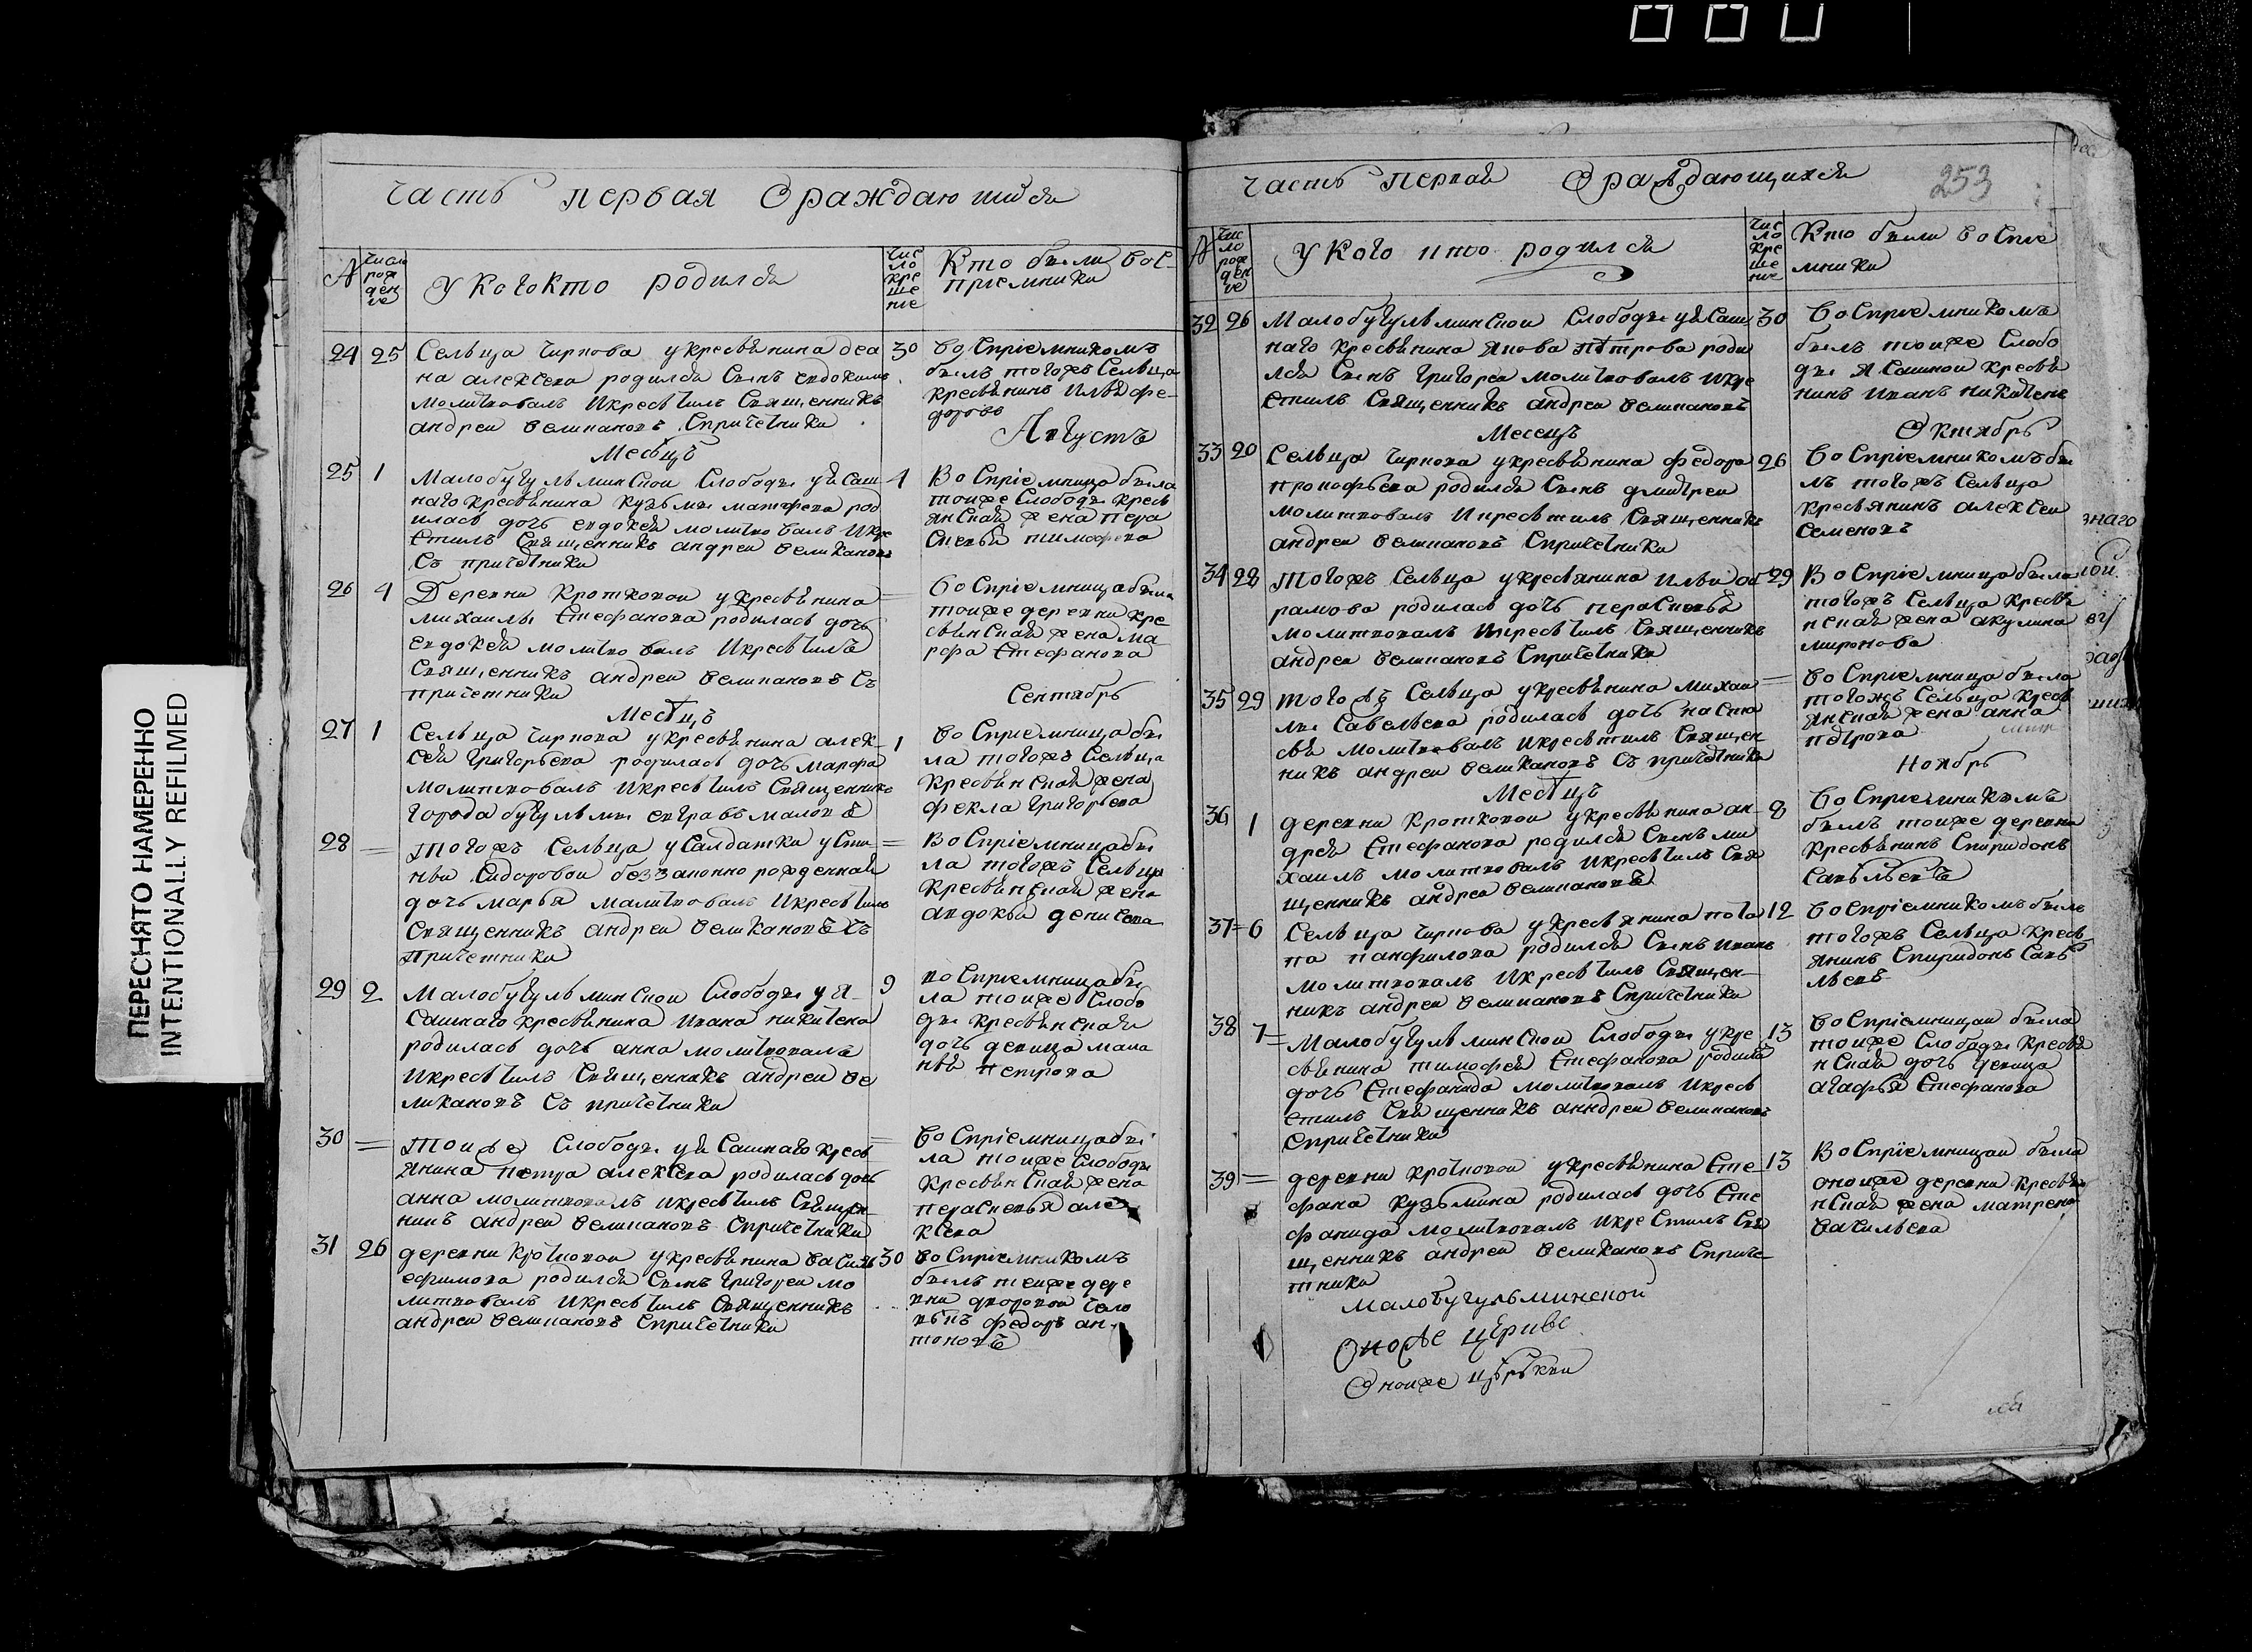 ПЕРЕСНЯТО НАМЕРЕННО
INTENTIONALLY REFILMED
часть первая Ораждаюшися
№
число рож ден ие
У кого кто родился
чис ло кре ще ние
Кто были вос-
приемники
24 25 Сельца чиркова укресьянина
на алексева родился Сынъ евдокимъ
молитвовалъ Икрестилъ Священникъ
андреи великановъ Спричетники
30 восприемникомъ
былъ тогожъ Сельца
кресьянинъ Илья фе-
доровъ
Месяцъ Августъ
25 1 Малобугульминской Слободы уясаш
наго кресьянина кузьмы матфева род
илась дочь евдокея молитвовалъ Икре
стилъ Священникъ андреи великановъ
Съ причетники
4 Восприемница была
тоиже Слободы кресь
янская жена пера
сковья тимофева
26 4 Деревни Кротковои укресьянина
михаилы Стефанова родилась дочь
евдокея молитвовалъ Икрестилъ
Священникъ андреи великановъ Съ
причетники
= восприемница была
тоиже деревни кре
сьянская жена ма
рфа Стефанова
Месяцъ Сентябрь
27 1 Сельца чиркова укресьянина алек-
сея григорьева родилась дочь марфа
молитвовалъ Икрестилъ Священникъ
города бугульмы евграфъ маловъ
1 восприемница бы
ла тогожъ Сельца
кресьянская жена
фекла григорьева
28 = Тогожъ Сельца уСалдатки усти
ньи Сидоровои беззаконно рожденная
дочь марья малитвовалъ Икрестилъ
Священникъ андреи великановъ Съ
причетники
= восприемница бы
ла тогожъ Сельца
кресьянская жена
авдокья денисева
29 2 Малобугульминской Слободы уя-
сашнаго кресьянина Ивана никитева
родилась дочь анна молитвовалъ
Икрестилъ Священникъ андреи ве
ликановъ Съ причетники
9 восприемница бы
ла тоиже Слобо
ды кресьянская
дочь девица мала
нья петрова
30 = Тоиже Слободы уясашнаго кресь
янина петра алексева родилась дочь
анна молитвовалъ икрестилъ Священ-
никъ андреи великановъ Спричетники
= восприемница бы
ла тоиже Слободы
кресьянская жена
перасковья але
ксева
31 26 деревни кротковои укресьянина василья
ефимова родился Сынъ григореи мо
литвовалъ Икрестилъ Священникъ
андреи великановъ Спричетники
30 восприемникомъ
былъ тоиже дере
вни дворовои чело
векъ федоръ ан-
тоновъ
часть первая Ораждающихся
253
№
чис ло рож ден ие
У кого кто родился
чис ло кре ще ние
Кто были воспри
мники
32 26 Малобугульминской Слободы уясаш
наго кресьянина якова петрова роди
лся Сынъ григореи молитвовалъ Икре
стилъ Священникъ андреи великановъ
30 восприемникомъ
былъ тоиже Слобо
ды ясашнои кресья
нинъ иванъ
Месецъ Октябрь
33 20 Сельца чиркова укресьянина федора
прокофьева родился Сынъ дмитреи
молитвовалъ Икрестилъ Священникъ
андреи великановъ Спричетники
26 восприемникомъ бы
лъ тогожъ Сельца
кресьянинъ алексеи
Семеновъ
34 28 Тогожъ Сельца укресьянина ильи аб
рамова родилась дочь перасковья
молитвовалъ Икрестилъ Священникъ
андреи великановъ Спричетники
29 восприемница была
тогожъ Сельца кресья
нская жена акулина
миронова
35 29 Тогожъ Сельца укресьянина михаи
лы Савельева родилась дочь наста
сья молитвовалъ икрестилъ Священ
никъ андреи великановъ Съ причетники
= восприемница была
тогожъ Сельца кресь
янская жена анна
петрова
Месяцъ Ноябрь
36 1 деревни кротковои укресьянина ан-
дрея Стефанова родился Сынъ ми
хаилъ молитвовалъ Икрестилъ Свя
щенникъ андреи великановъ
8 восприемникомъ
былъ тоиже деревни
кресьянинъ Спиридонъ
Савельевъ
37 6 Сельца чиркова укресьянина пота
па панфилова родился Сынъ иванъ
молитвовалъ Икрестилъ Священ-
никъ андреи великановъ Спричетники
12 восприемникомъ былъ
тогожъ Сельца кресь
янинъ Спиридонъ Саве
льевъ
38 7 Малобугульминской Слободы укре
сьянина тимофея Стефанова родила
дочь Стефанида молитвовалъ Икрес
стилъ Священникъ анндреи великановъ
Спричетники
13 восприемницаи была
тоиже Слободы кресья
нская дочь девица
агафья Стефанова
39 = деревни кротковои укресьянина Сте
фана кузьмина родилась дочь Сте
фанида молитвовалъ Икрестилъ Свя
щенникъ андреи великановъ Сприче-
тники
13 восприемницаи была
оноиже деревни кресья
нская жена матрена
васильева
Малобугульминской
Оноиже церкве
Оноиже церькви